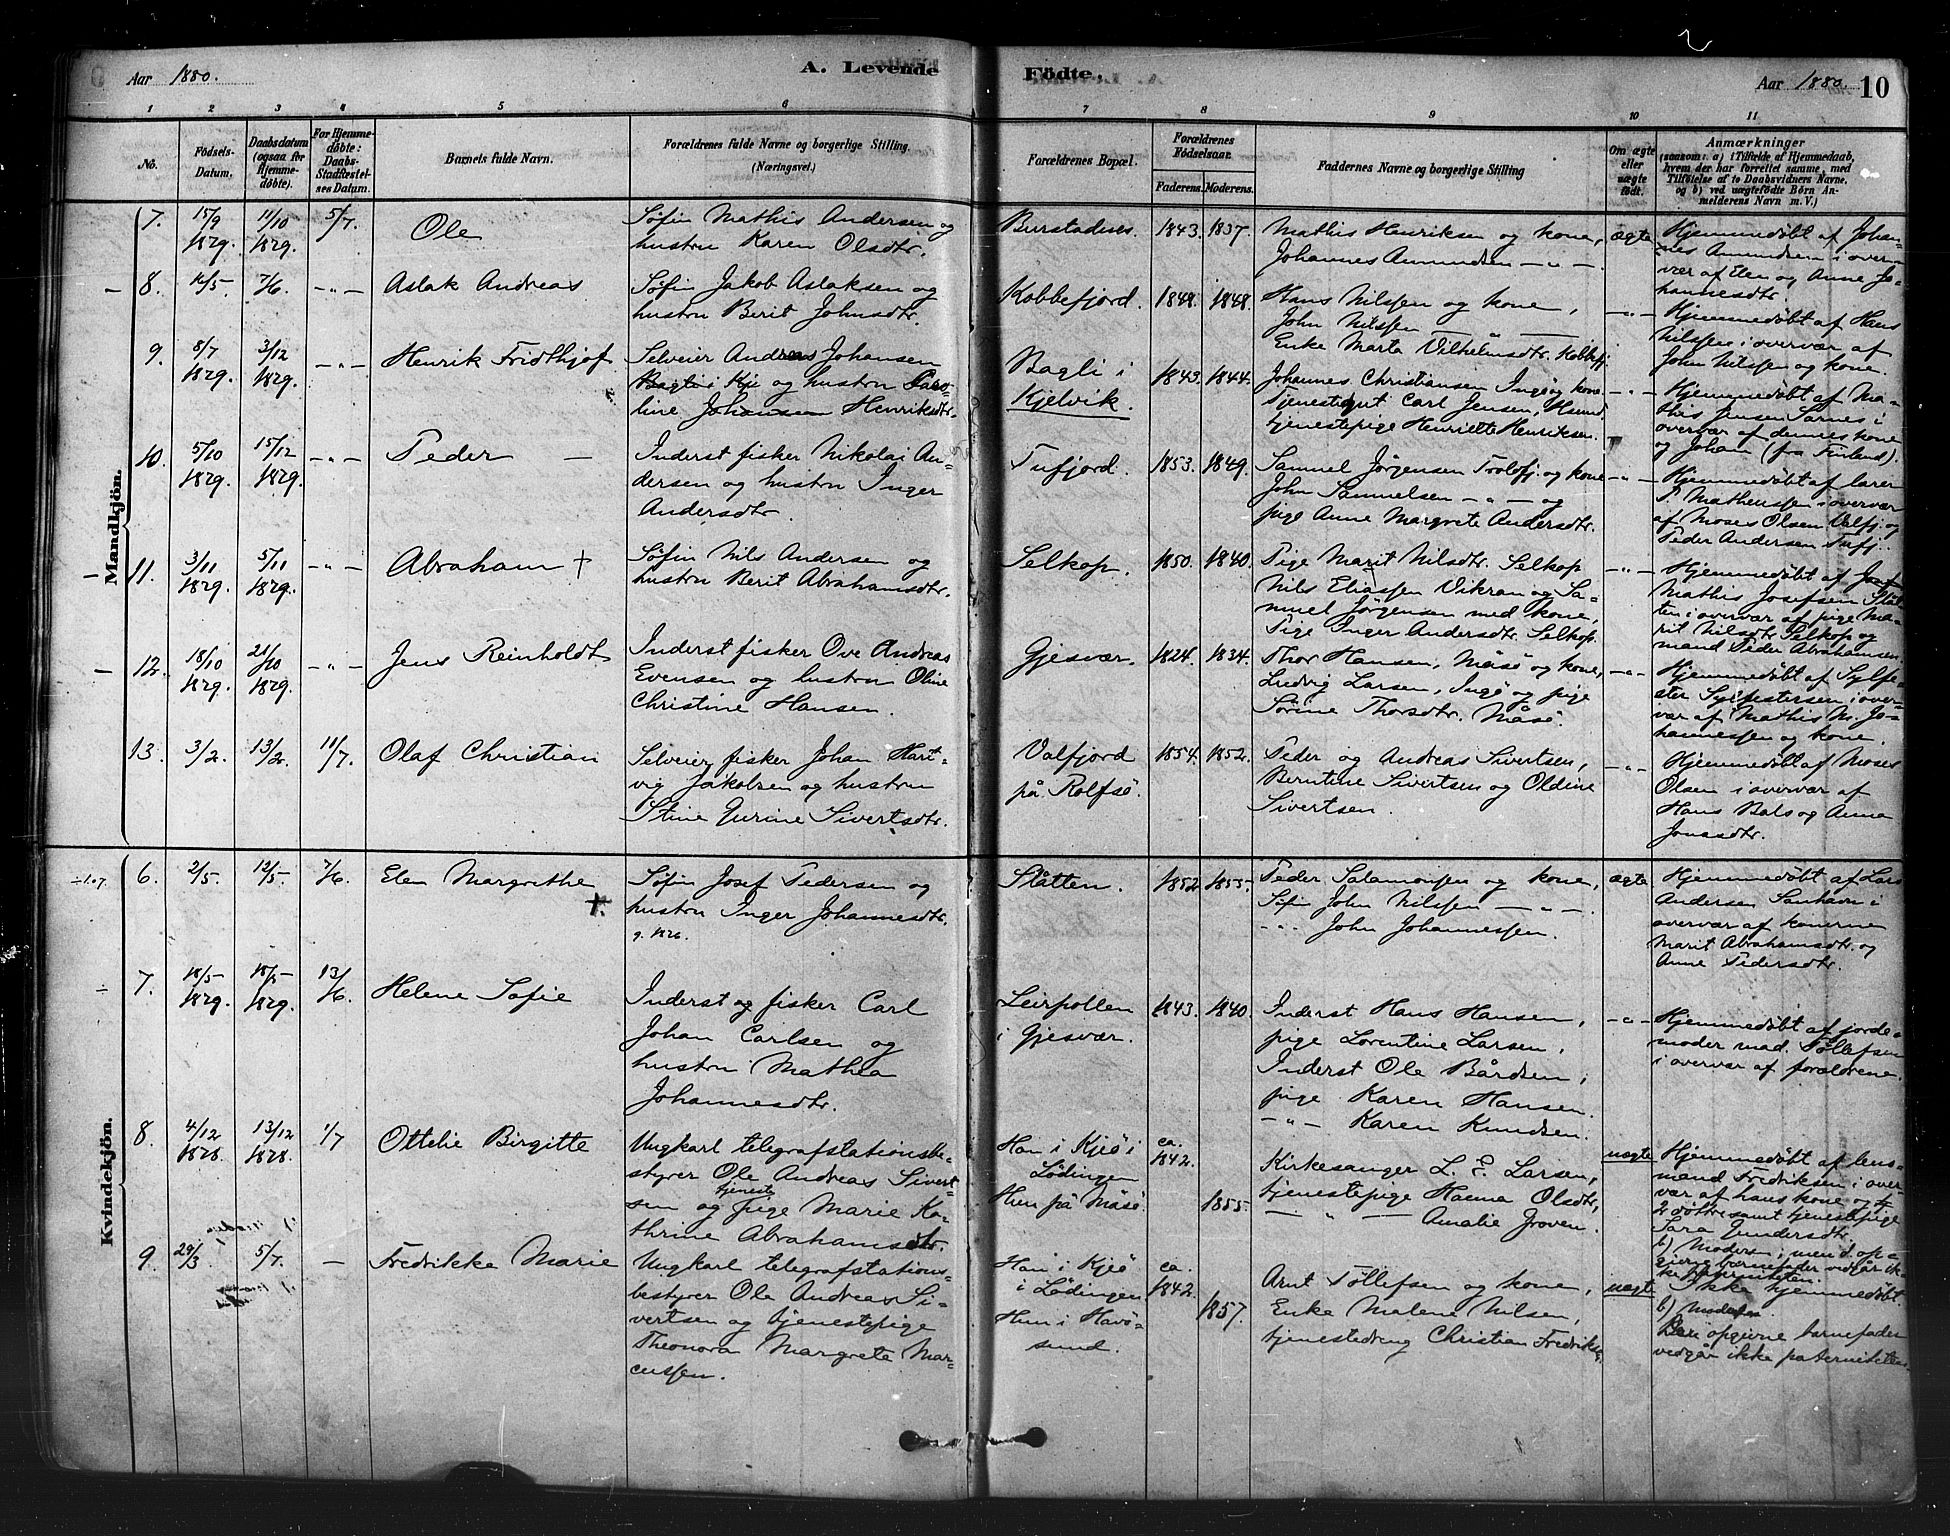 Aar 1880.
A. Levende
Födte.
Aar 1880. 10
1 2 3 4 5 6 7 8 9 10 11
No.
Födsels-
Datum.
Daabsdatum
(ogsaa for
Hjemme-
döbte).
For Hjemme-
döbte:
Daabs-
Stadfæstel-
ses Datum.
Barnets fulde Navn.
Forældrenes fulde Navne og borgerlige Stilling
(Næringsvei.)
Forældrenes Bopæl.
Forældrenes
Födselsaar.
Faderens. Moderens.
Faddernes Navne og borgerlige Stilling
Om ægte
eller
uægte
födt.
Anmærkninger
(saasom: a) i Tilfælde af Hjemmedaab,
hvem der har forrettet samme, med
Tilföielse af to Daabsvidners Navne,
og b) ved uægtefödte Börn An-
melderens Navn m. V.)
Mandkjön.
7. 15/9 1879. 11/10 1879. 5/7. Ole
Søfin Mathis Andersen og
hustru Karen Olsdtr.
Burstadnes. 1843. 1837.
Mathis Henriksen og kone,
Johannes Amundsen — " —.
ægte
Hjemmedøbt af Johan-
nes Amundsen i over-
vær af Elen og Anne Jo-
hannesdtr.
8. 14/5. 7/6. — " — Aslak Andreas
Søfin Jakob Aslaksen og
hustru Berit Johnsdtr.
Kobbefjord. 1848. 1848.
Hans Nilssen og kone,
John Nilssen
Enke Marta Vilhelmsdtr. Kobbefj.
— " —
Hjemmedøbt af Hans
Nilssen i overvær af
John Nilssen og kone.
9. 8/7 1879. 3/12 1879. — " — Henrik Fridthjof
Selveier Andreas Johansen
Bagli i Kje og hustru Karo-
line Johansen Henriksdtr.
Bagli i
Kjelvik.
1843. 1844.
Johannes Christiansen Ingøy, kone
Tjenestegut Carl Jensen,
tjenestepige Henriette Henriksen.
— " —
Hjemmedøbt af Ma-
this Jensen Sarnes i
overvær af dennes kone
og Johan (fra Finland).
10. 5/10 1879. 15/12 1879. — " — Peder —
Inderst fisker Nikolai An-
dersen og hustru Inger
Andersdtr.
Tufjord. 1853. 1849.
Samuel Jørgensen Trolofj. og kone
John Samuelsen — " — og
pige Anne Margrete Andersdtr.
— " —
Hjemmedøbt af lærer
P. Matheussen i overvær
af Moses Olsen Valfj. og
Peder Andersen Tufj.
— 11. 3/11 1879. 5/11 1879. — " — Abraham †
Søfin Nils Andersen og
hustru Berit Abrahamsdtr.
Selkop. 1850. 1840.
Pige Marit Nilsdtr. Selkop
Nils Eliassen Vikran og Sa-
muel Jørgensen med kone,
Pige Inger Andersdtr. Selkop.
— " —
Hjemmedøbt af Josef
Mathis Josefsen Slåt-
ten i overvær af pige Ma-
rit Nilsdtr. Selkop og
mand Peder Abrahamsen.
— 12. 18/10 1879. 21/10 1879. — " — Jens Reinholdt
Inderst fisker Ove Andreas
Evensen og hustru Oline
Christine Hansen.
Gjesvær. 1824. 1834.
Thor Hansen, Måsø og kone,
Ludvig Larsen, Ingø og pige
Sørine Thorsdtr. Måsø.
— " —
Hjemmedøbt af Sylfe-
ster Sylfestersen i over-
vær af Mathis M. Jo-
hannessen og kone.
13. 3/2. 13/2. 11/7. Olaf Christian
Selveier fisker Johan Hart-
vig Jakobsen og hustru
Stine Eurine Sivertsdtr.
Valfjord
på Rolfsø.
1854. 1852.
Peder og Andreas Sivertsen,
Berntine Sivertsen og Oldine
Sivertsen.
— " —
Hjemmedøbt af Moses
Olsen i overvær af
Hans Nals og Anna
Jonsdtr.
Kvindekjön.
÷107 6. 2/5. 12/5. 7/6. Elen Margrethe †.
Søfin Josef Pedersen og
hustru Inger Johannesdtr.
g. 1876.
Slåtten. 1852 1855.
Peder Salamonsen og kone,
Søfin John Nilssen — " —.
— " — John Johannessen.
ægte
Hjemmedøbt af Lars
Andersen Sanhavn i
overvær af konerne
Marit Abrahamsdtr. og
Anne Pedersdtr.
÷ 7. 18/5 1879. 18/5 1879. 13/6. Helene Sofie
Inderst og fisker Carl
Johan Carlsen og
hustru Mathea
Johannesdtr.
Leirpollen
i Gjesvær.
1843. 1840.
Inderst Hans Hansen,
pige Lorentine Larsen,
Inderst Ole Bårdsen,
pige Karen Hansen.
— " — Karen Knudsen.
— " —
Hjemmedøbt af jorde-
moder mad. Tøllefsen
i overvær af forældrene.
8. 4/12 1878. 13/12 1878. 1/7 Ottelie Birgitte
Ungkarl telegrafstationsbe-
styrer Ole Andreas Sivert-
tjeneste
sen og pige Marie Ka-
thrine Abrahamsdtr.
Han i Kjeø i
Lødingen
Hun på Måsø
ca.
1842.
1855.
Kirkesanger L. E. Larsen,
tjenestepige Hanna Olsdtr,
— " — Amalie Groven.
uægte
Hjemmedøbt af lens-
mand Fredriksen i over-
vær af hans kone og
2 døttre samt tjenestepige
Sara Gundersdtr.
b) Moderen; men d. op-
givne barnefader vedgår ik-
ke paterniteten.
9. 29/3. 5/7. — Fredrikke Marie
Ungkarl telegrafstations-
bestyrer Ole Andreas Si-
vertsen og tjenestepige
Theonora Margrete Mar-
cussen.
Han i Kjeø
i Lødingen
Hun i Havø-
sund.
ca.
1842.
1857.
Arnt Tøllefsen og kone,
Enke Malene Nilsen,
tjenestedreng Christian Fredriks.
uægte
Ikke hjemmedøbt.
b) Moderen.
Den opgivne barnefader
vedgår ikke paterniteten.